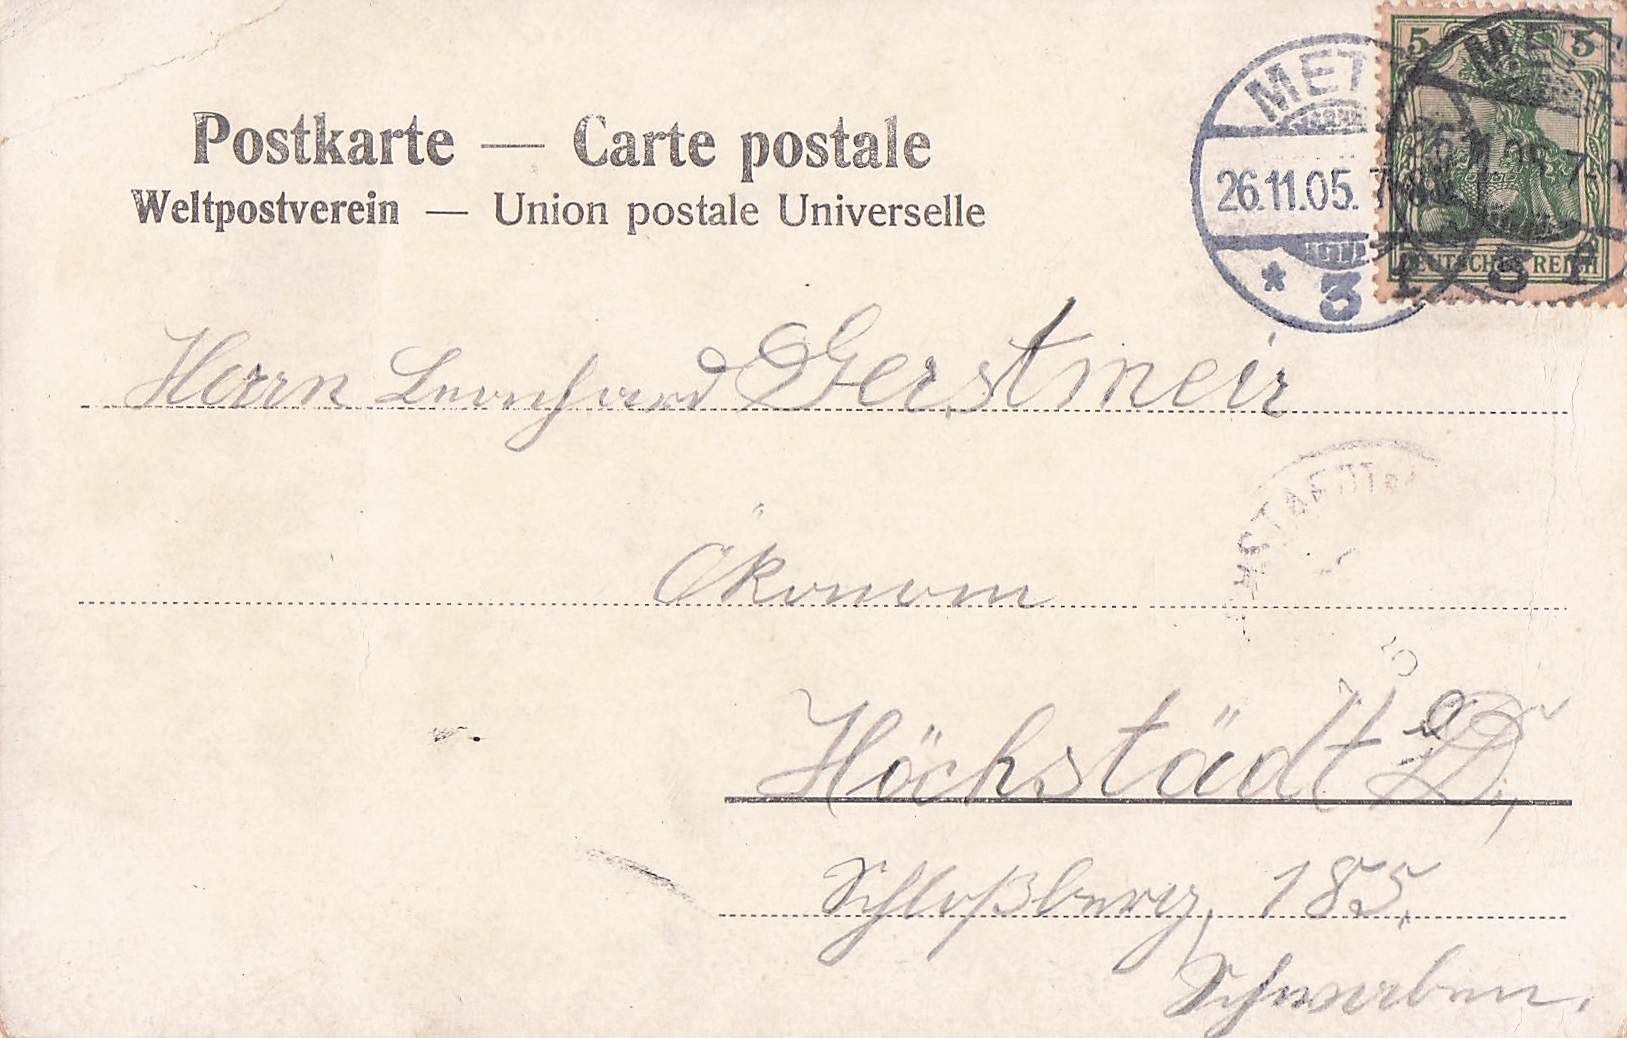 Postkarte — Carte postale
Weltpostverein — Union postale Universelle
5 5
DEUTSCHES REICH
METZ
26.11.05. 7-
* 3
Herrn Leonhard Gerstmeir
Ökonom
Höchstädt a/D,
Schloßberg, 185,
Schwaben.